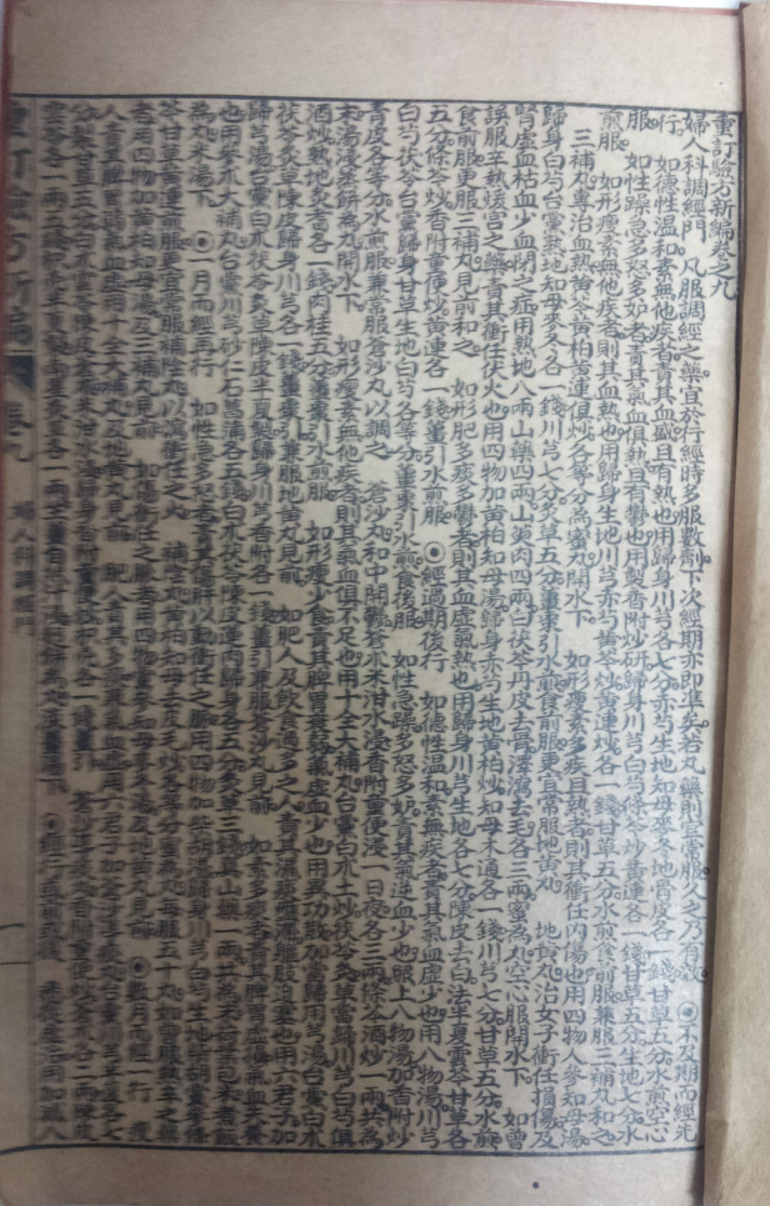 重訂驗方新編卷之九
婦人科調經門 凡服調經之藥宜於行經時多服數劑下次經期亦即準矣若丸藥則宜常服久之乃有效 ◉不及期而經先
行 如德性溫和素無他疾者責其血盛且有熱也用歸身川芎各七分赤芍生地知母麥冬地骨皮各一錢甘草五分水煎空心
服 如性躁急多怒多妒者責其氣血俱熱且有鬱也用製香附炒研歸身川芎白芍條芩炒黃連各一錢甘草五分生地七分水
煎服 如形瘦素無他疾者則其血熱也用歸身生地川芎赤芍黃芩炒黃連炒各一錢甘草五分水煎食前服兼服三補丸和之
三補丸專治血熱黃芩黃柏黃連俱炒各等分為蜜丸開水下 如形瘦素多疾且熱者則其衝任內傷也用四物人參知母湯
歸身白芍台黨熟地知母麥冬各一錢川芎七分炙草五分薑棗引水煎食前服更宜常服地黃丸 地黃丸治女子衝任損傷及
腎虛血枯血少血閉之症用熟地八兩山藥四兩山萸肉四兩白茯苓丹皮去骨澤瀉去毛各三兩蜜為丸空心服開水下 如曾
誤服辛熱煖宮之藥責其衝任伏火也用四物加黃柏知母湯歸身赤芍生地黃柏炒知母木通各一錢川芎七分甘草五分水煎
食前服更服三補丸見前和之 如形肥多痰多鬱者則其血虛氣熱也用歸身川芎生地各七分陳皮去白法半夏雲苓甘草各
五分條芩炒香附童便炒黃連各一錢薑引水煎服 ◉經過期後行 如德性溫和素無疾者責其氣血虛少也用八物湯川芎
白芍茯苓台黨歸身甘草生地白芍各等分薑棗引水煎食後服 如性急躁多怒多妒責其氣逆血少也照上八物湯加香附炒
青皮各等分水煎服兼常服蒼沙丸以調之 蒼沙丸和中開鬱蒼朮米泔水浸香附童便浸一日夜各三兩條芩酒炒一兩共為
末湯浸蒸餅為丸開水下 如形瘦素無他疾者則其氣血俱不足也用十全大補丸台黨白朮土炒茯苓炙草當歸川芎白芍俱
酒炒熟地炙耆各一錢肉桂五分薑棗引水煎服 如形瘦少食責其脾胃衰弱氣虛血少也用異功散加當歸用芎湯台黨白朮
茯苓炙草陳皮歸身川芎各一錢薑棗引兼服地黃丸見前 如肥人及飲食過多之人責其濕痰壅滯軀肢迫塞也用六君子加
歸芎湯台黨白朮茯苓炙草陳皮半夏製歸身川芎香附各一錢薑引兼服蒼沙丸見前 如素多痰者責其脾胃虛損氣血失養
也用參朮大補丸台黨川芎砂仁石菖蒲各五錢白朮茯苓陳皮蓮肉歸身各五分炙草三錢真山藥一兩共為末荷葉包米煮飯
為丸米湯下 ◉一月而經再行 如性急多怒者責其傷肝以動衝任之脈用四物加柴胡湯歸身川芎白芍生地柴胡臺參條
芩甘草黃連煎服更宜常服補陰丸以瀉衝任之火 補陰丸黃柏知母去皮毛炒各等分蜜為丸每服五十丸如曾服熱辛之藥
者用四物加黃柏知母湯及三補丸見前 如傷衝任之脈者用四物臺參知母麥冬湯及地黃丸見前 ◉數月而經一行 瘦
人責其脾胃弱氣血虛用十全大補丸及地黃丸見前 肥人責其多痰兼氣血虛用六君子加蒼沙導痰丸
重訂驗方新編 卷九 婦人科調經門